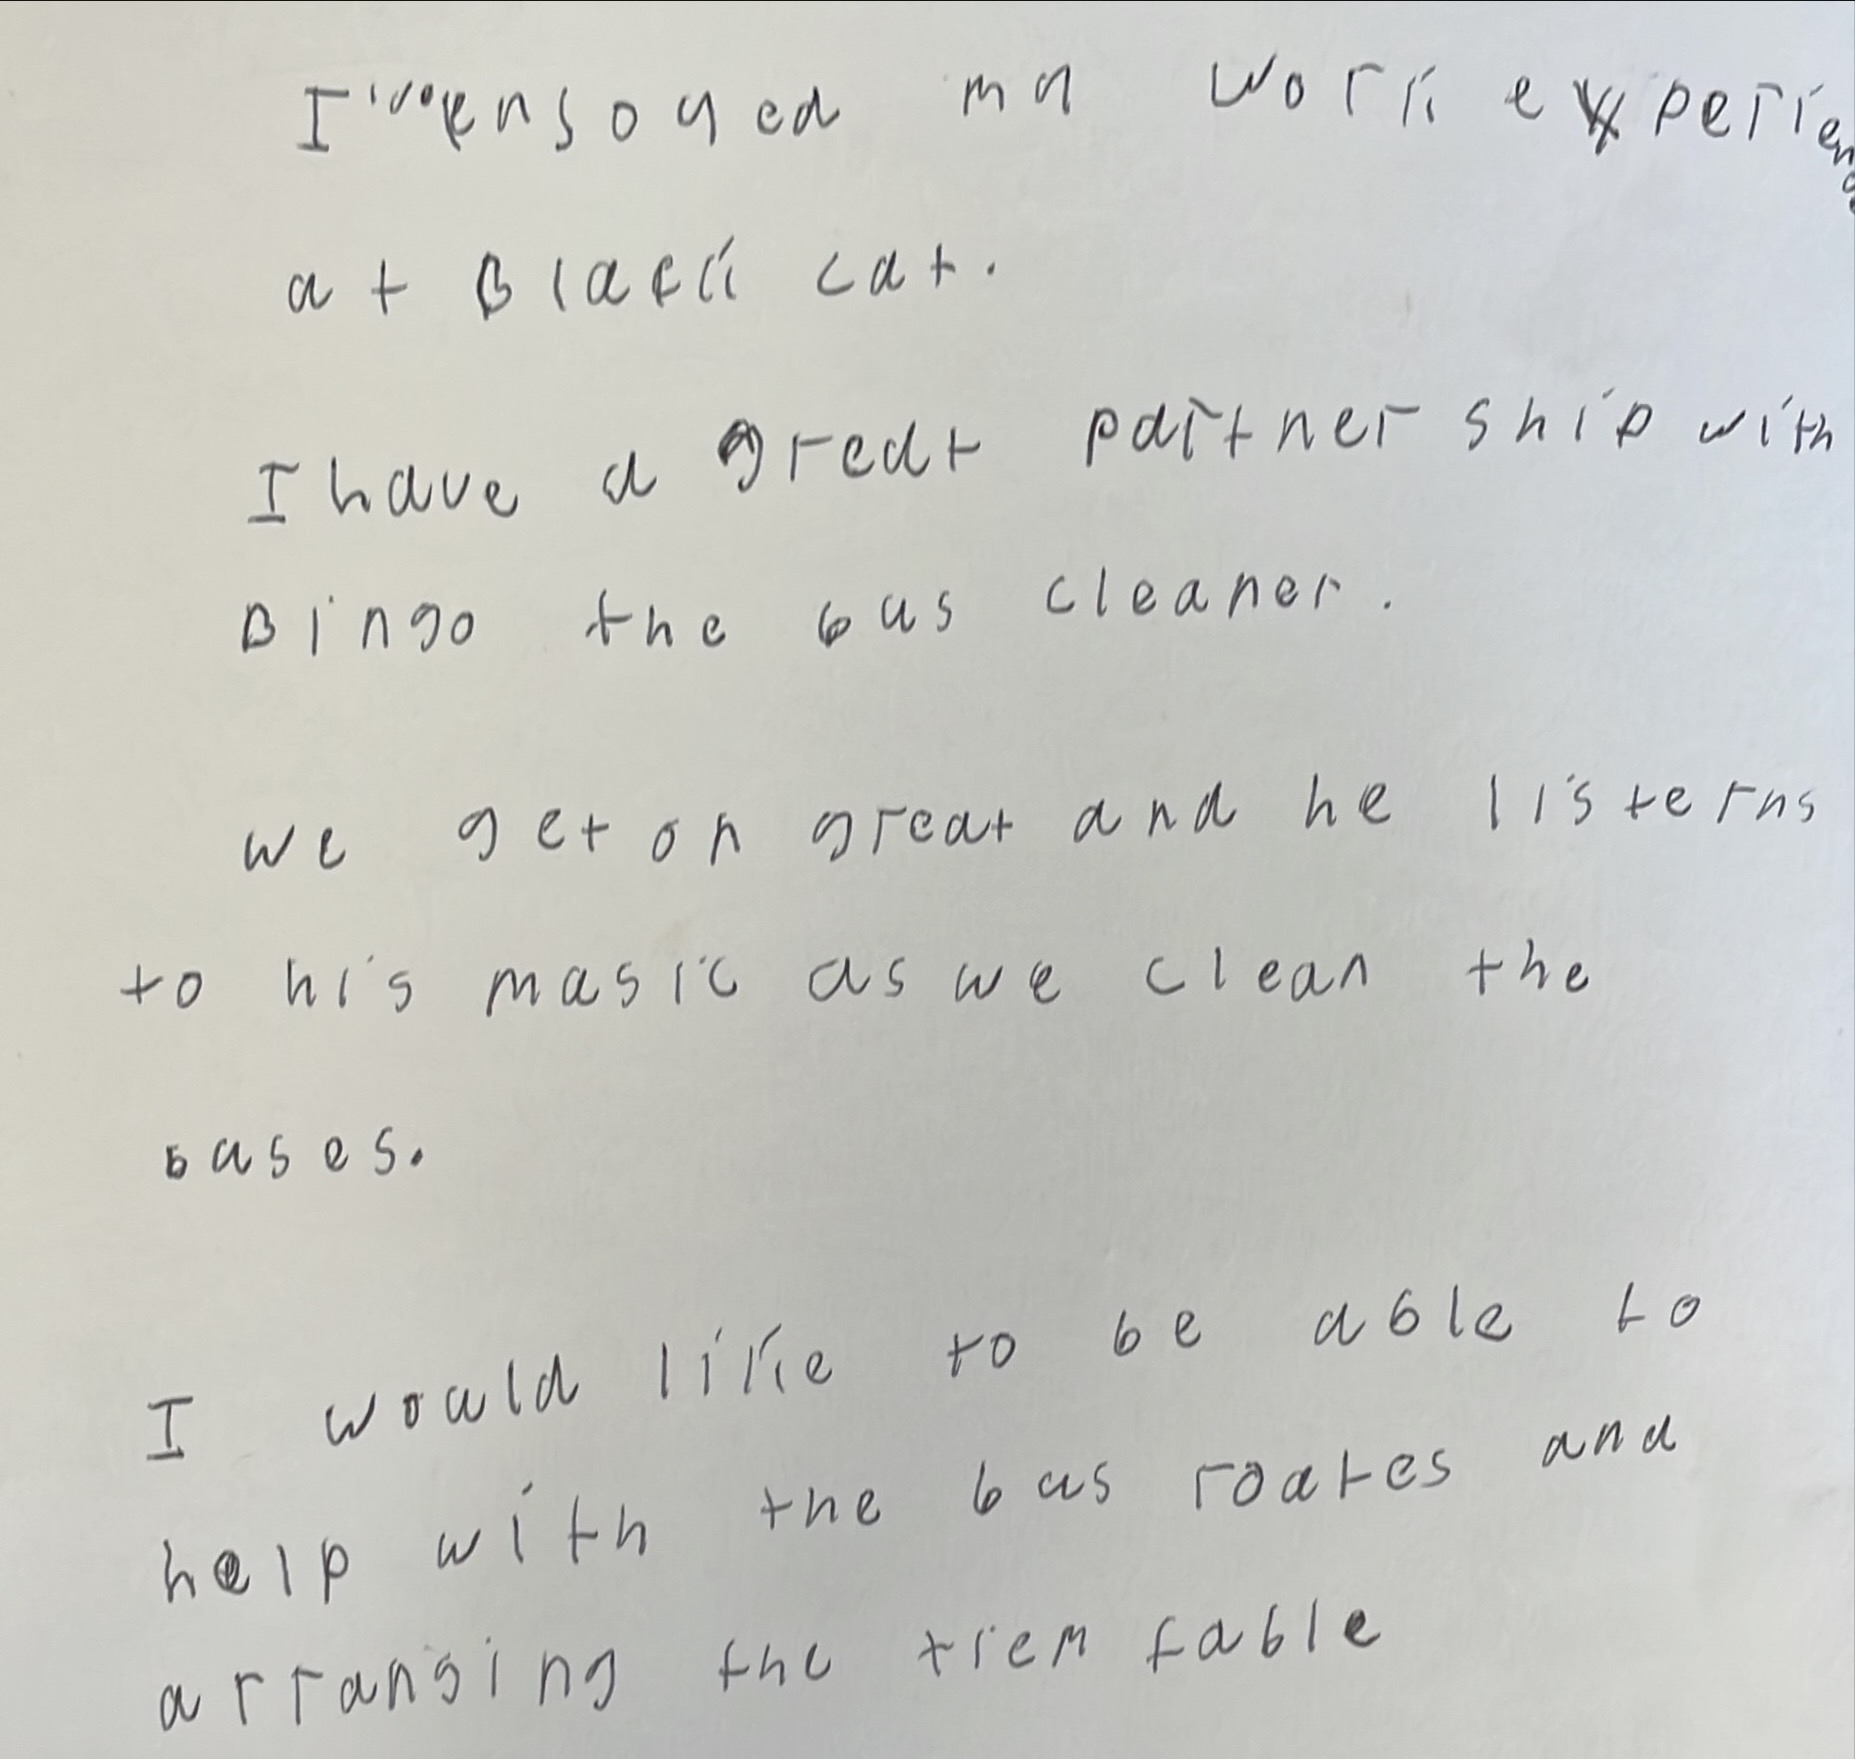 I've enjoyed my work experience
at Black cat.
I have a great partner ship with
Bingo the bus cleaner.
we get on great and he listerns
to his music as we clean the
buses.
I would like to be able to
help with the bus routes and
arranging the tiem table